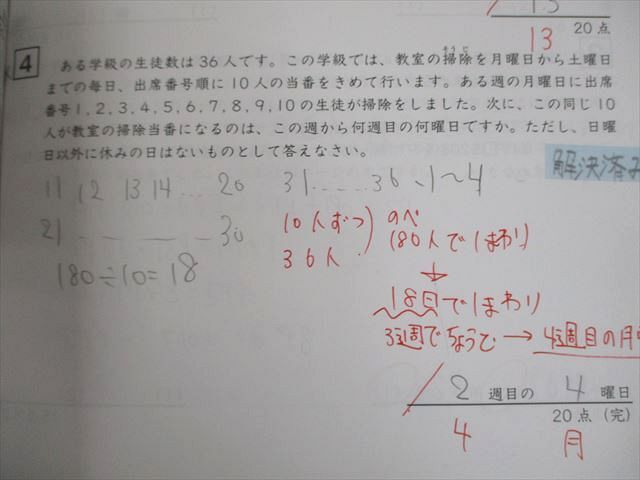 13
20点
13
4 ある学級の生徒数は36人です。この学級では、教室の掃除を月曜日から土曜日
そうじ
までの毎日、出席番号順に10人の当番をきめて行います。ある週の月曜日に出席
番号1,2,3,4,5,6,7,8,9,10の生徒が掃除をしました。次に、この同じ10
人が教室の掃除当番になるのは、この週から何週目の何曜日ですか。ただし、日曜
日以外に休みの日はないものとして答えなさい。
解決済み
11 12 13 14 ... 20 31 ...... 36、1〜4
21 ... 30
10人ずつ のべ
36人 180人で1まわり
180÷10=18
18日で1まわり
3週でちょうど → 4週目の月
2 週目の 4 曜日
20点(完)
4 月